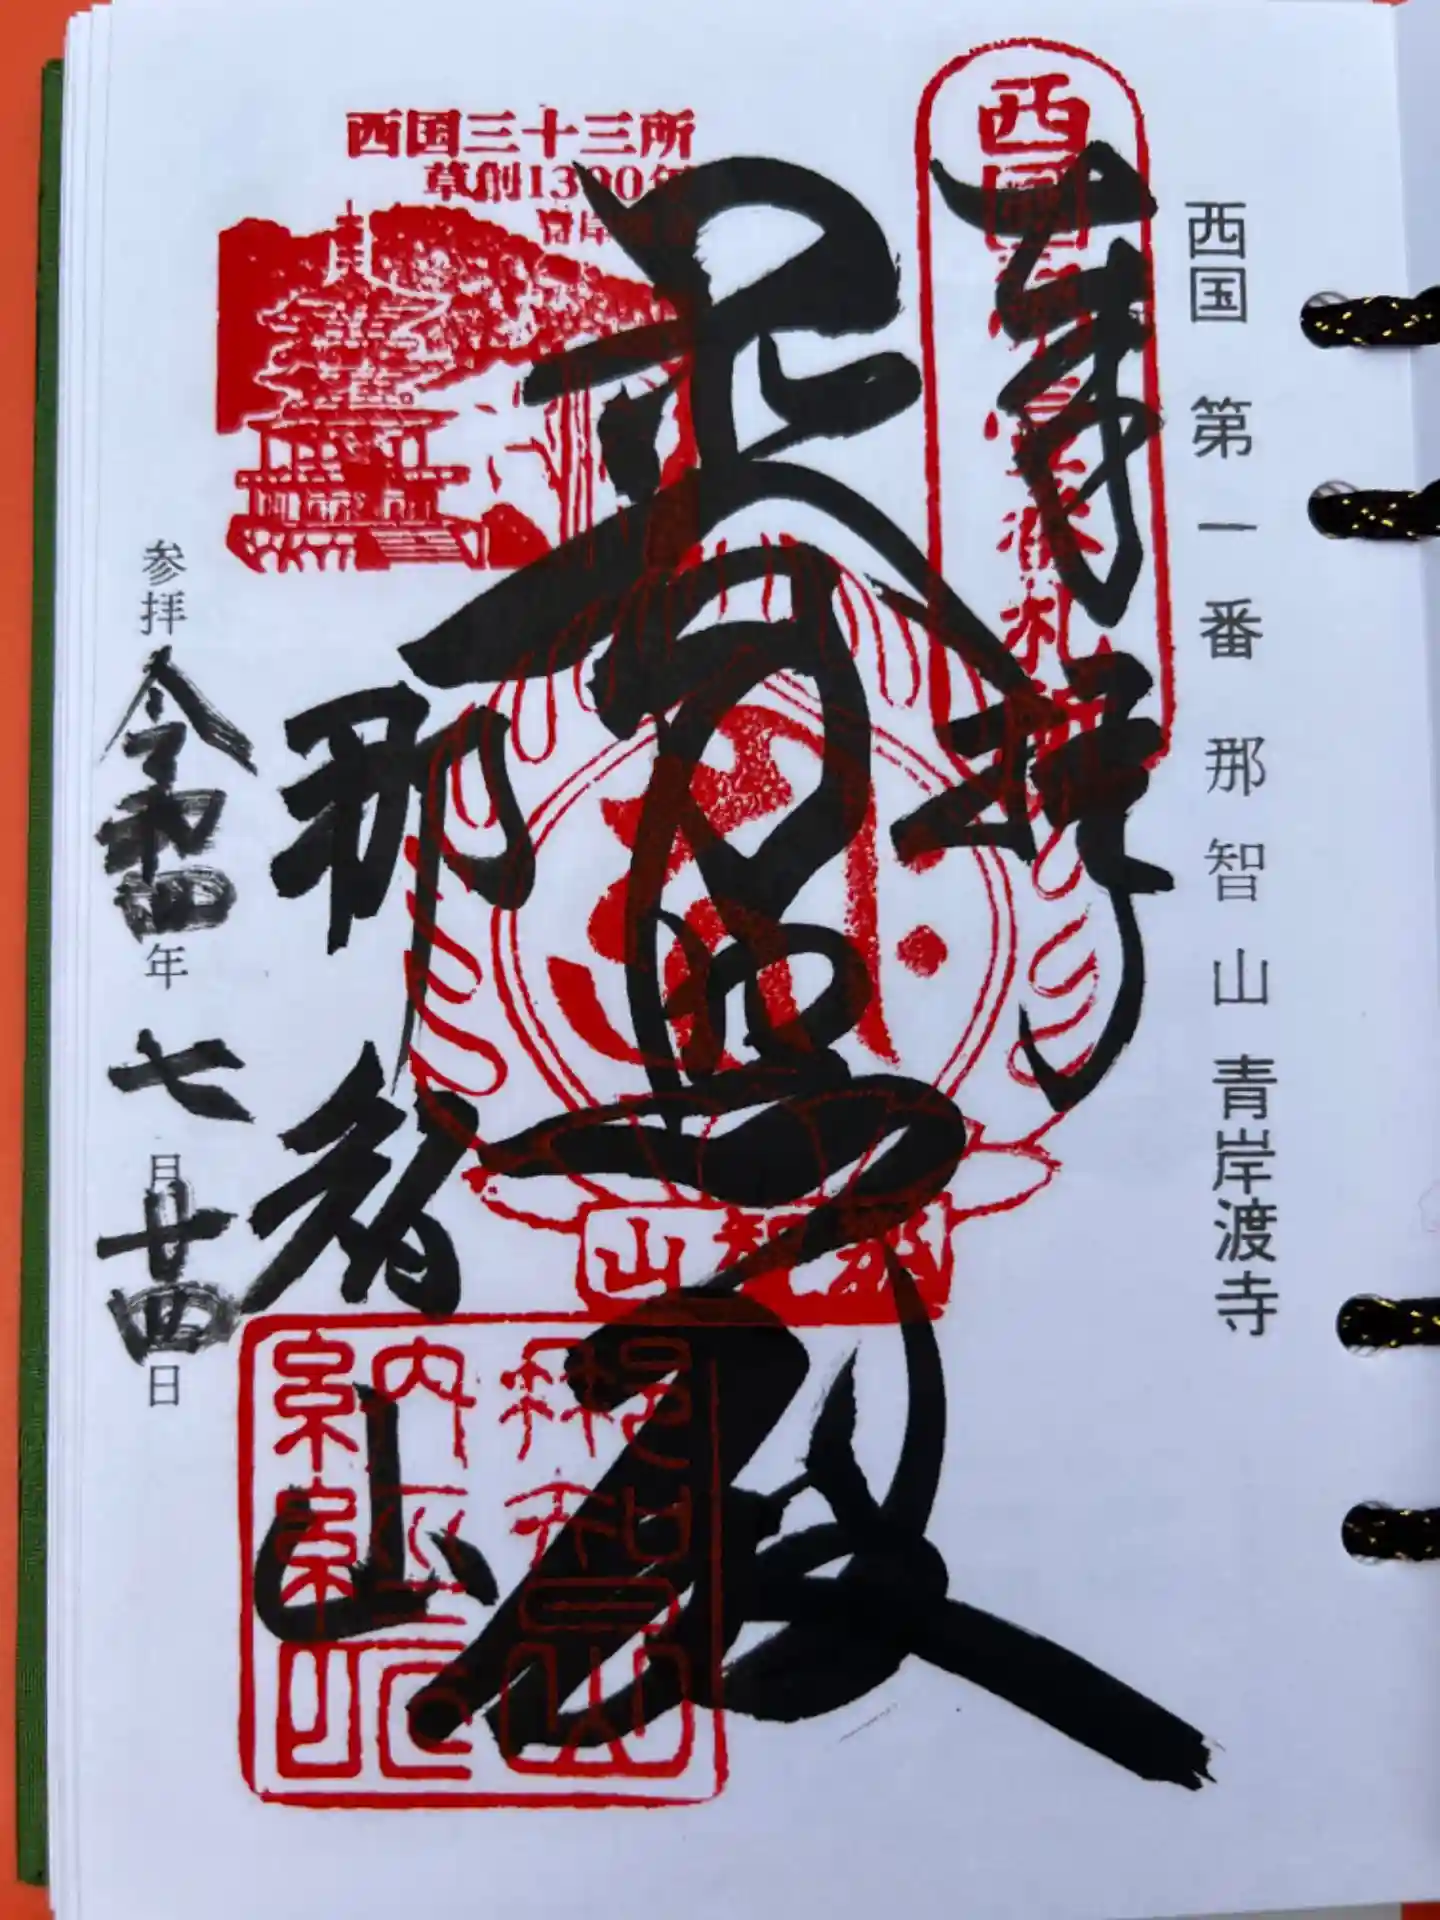 西国 第一番 那智山 青岸渡寺
奉拝
普照殿
那智山
西国三十三所
草創1300年
那智山
那智山
納経印
参拝 令和四年 七月廿四日